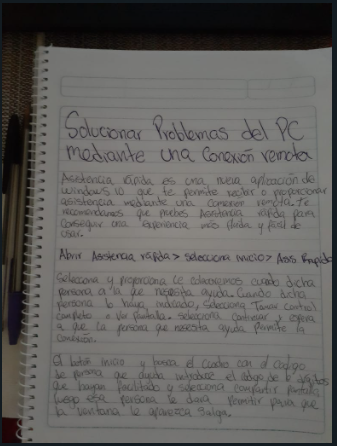 Solucionar Problemas del PC
mediante una Conexión remota
Asistencia rápida es una nueva aplicación de
Windows 10 que te permite recibir o proporcionar
asistencia mediante una conexión remota. Te
recomendamos que pruebes Asistencia rápida para
conseguir una experiencia más fluida y fácil de
usar.
Abrir Asistencia rápida > selecciona inicio > Asis Rapida
Selecciona y proporciona le cuando dicha
persona a la que necesita ayuda. Cuando dicha
persona lo haya indicado, selecciona Tomar control
completo o Ver pantalla. selecciona continuar y espera
a que la persona que necesita ayuda Permite la
conexión.
El botón inicio y busca el cuadro con el código
de persona que ayuda introduce el código de 6 dígitos
que hayan facilitado y selecciona compartir pantalla
luego esa persona le dara Permitir para que
la ventana le aparezca Salga.